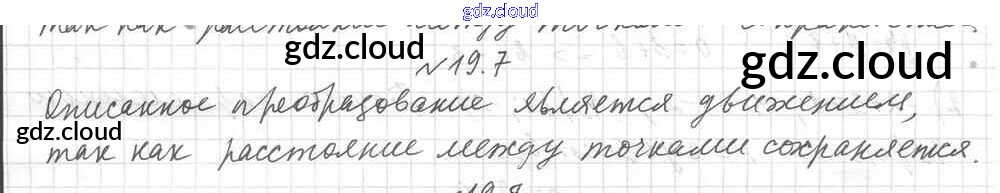 gdz.cloud
так как расстояние между точками сохраняется
gdz.cloud
gdz.cloud
№19.7
Описанное преобразование является движением,
gdz.cloud
так как расстояние между точками сохраняется.
gdz.cloud
19.8